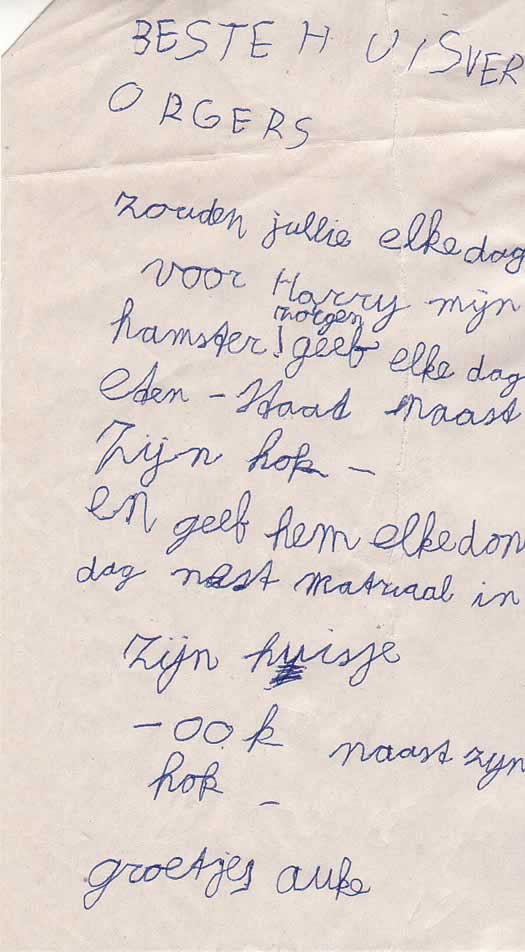 BESTE HUISVER
ORGERS
zouden jullie elke dag
voor Harry mijn
zorgen
hamster! geef elke dag
eten - staat naast
zijn hok -
en geef hem elke don
dag nest matriaal in
zijn huisje
- ook naast zijn
hok -
groetjes auke